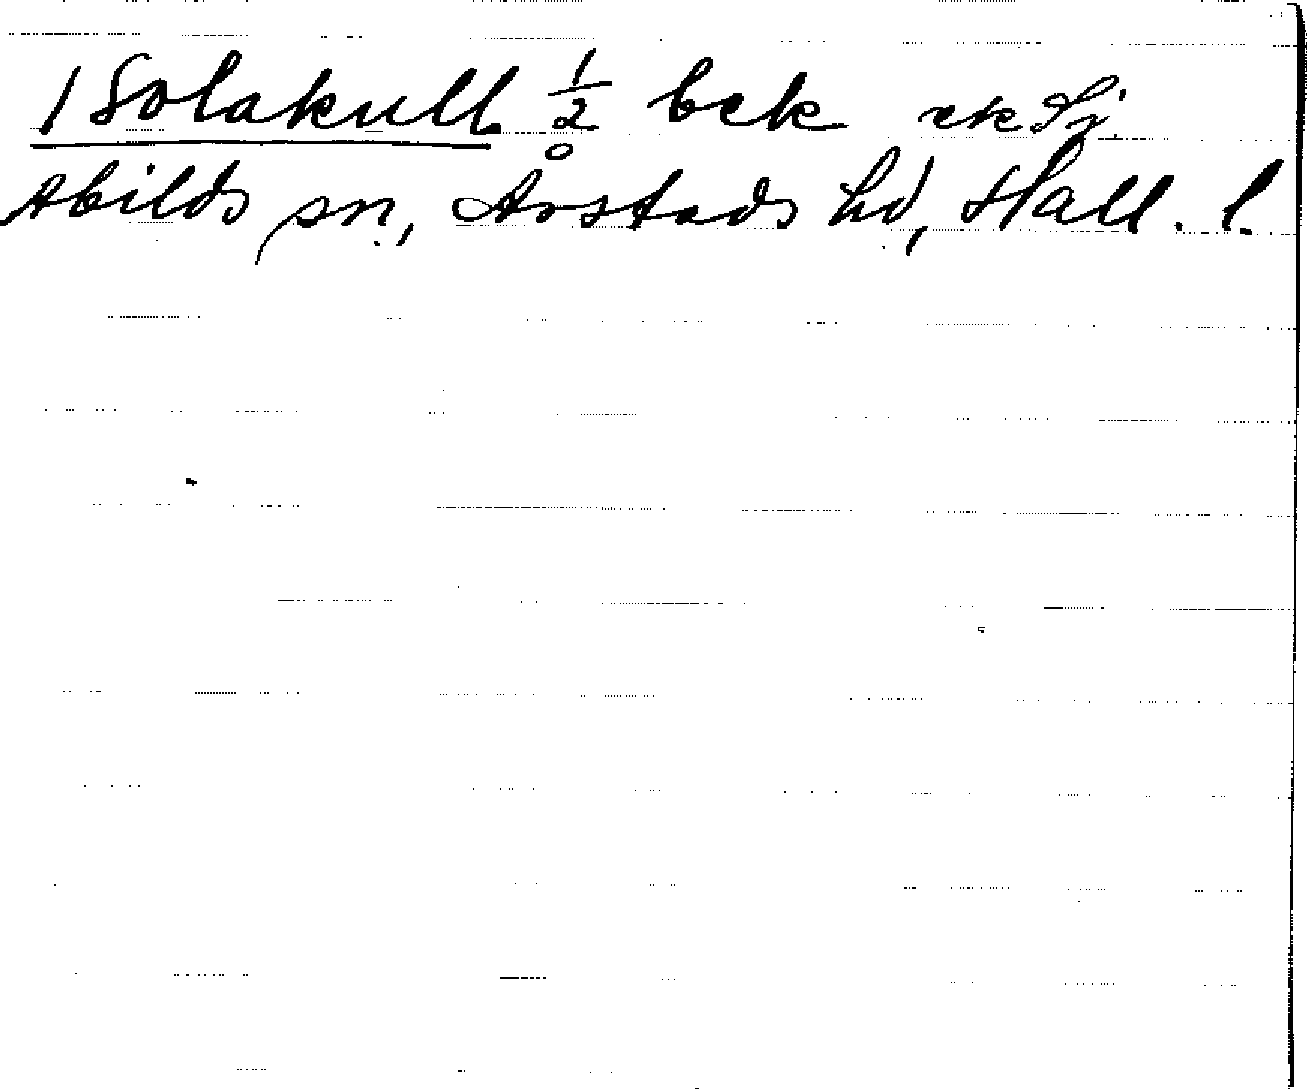 1 Solakull 1/2 bek ekSj.
Abilds sn, Årstads hd, Hall. l.